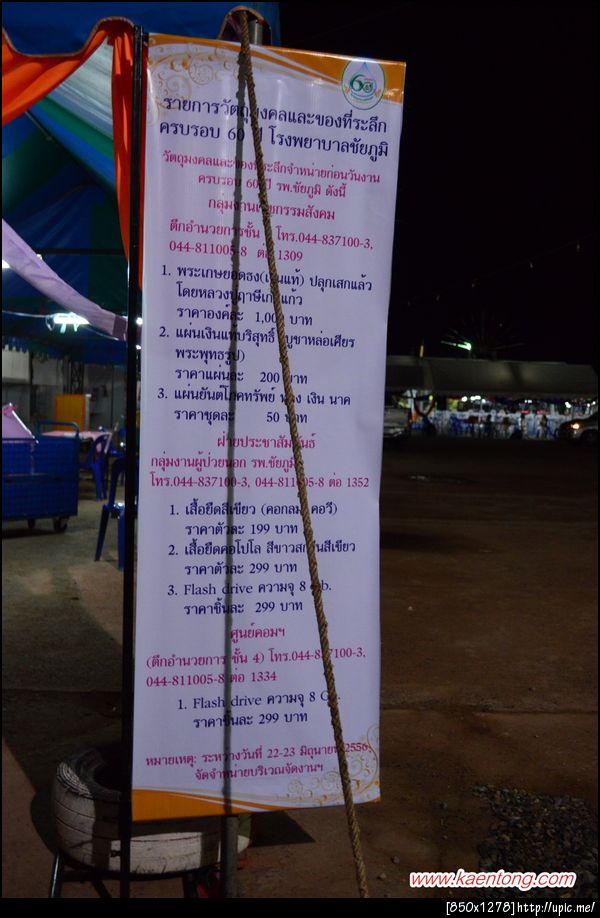 60
รายการวัตถุมงคลและของที่ระลึก
ครบรอบ 60 ปี โรงพยาบาลชัยภูมิ
วัตถุมงคลและของที่ระลึกจำหน่ายก่อนวันงาน
ครบรอบ 60 ปี รพ.ชัยภูมิ ดังนี้
กลุ่มงานเภสัชกรรมสังคม
ตึกอำนวยการชั้น โทร.044-837100-3,
044-811005-8 ต่อ 1309
1. พระเกษยอดธง(เงินแท้) ปลุกเสกแล้ว
โดยหลวงปู่ฤาษีเกตุแก้ว
ราคาองค์ละ 1,000 บาท
2. แผ่นเงินแท้บริสุทธิ์ บูชาหล่อเศียร
พระพุทธรูป
ราคาแผ่นละ 200 บาท
3. แผ่นยันต์โภคทรัพย์ ทอง เงิน นาค
ราคาชุดละ 50 บาท
ฝ่ายประชาสัมพันธ์
กลุ่มงานผู้ป่วยนอก รพ.ชัยภูมิ
โทร.044-837100-3, 044-811005-8 ต่อ 1352
1. เสื้อยืดสีเขียว (คอกลม, คอวี)
ราคาตัวละ 199 บาท
2. เสื้อยืดคอโปโล สีขาวสกรีนสีเขียว
ราคาตัวละ 299 บาท
3. Flash drive ความจุ 8 Gb.
ราคาชิ้นละ 299 บาท
ศูนย์คอมฯ
(ตึกอำนวยการ ชั้น 4) โทร.044-837100-3,
044-811005-8 ต่อ 1334
1. Flash drive ความจุ 8 Gb.
ราคาชิ้นละ 299 บาท
หมายเหตุ: ระหว่างวันที่ 22-23 มิถุนายน 2556
จัดจำหน่ายบริเวณจัดงานฯ
www.kaentong.com
[850x1278]http://upic.me/